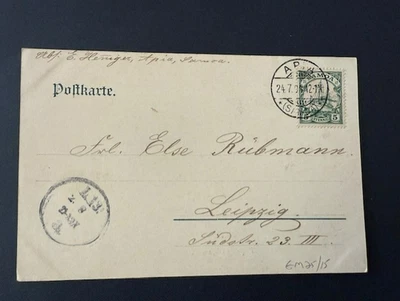 Abs. E. Heniger, Apia, Samoa.
Postkarte.
AP
24.7
12-1N
SAMOA
5
Frl. Else Rübmann.
Leipzig.
Südstr. 23 III.